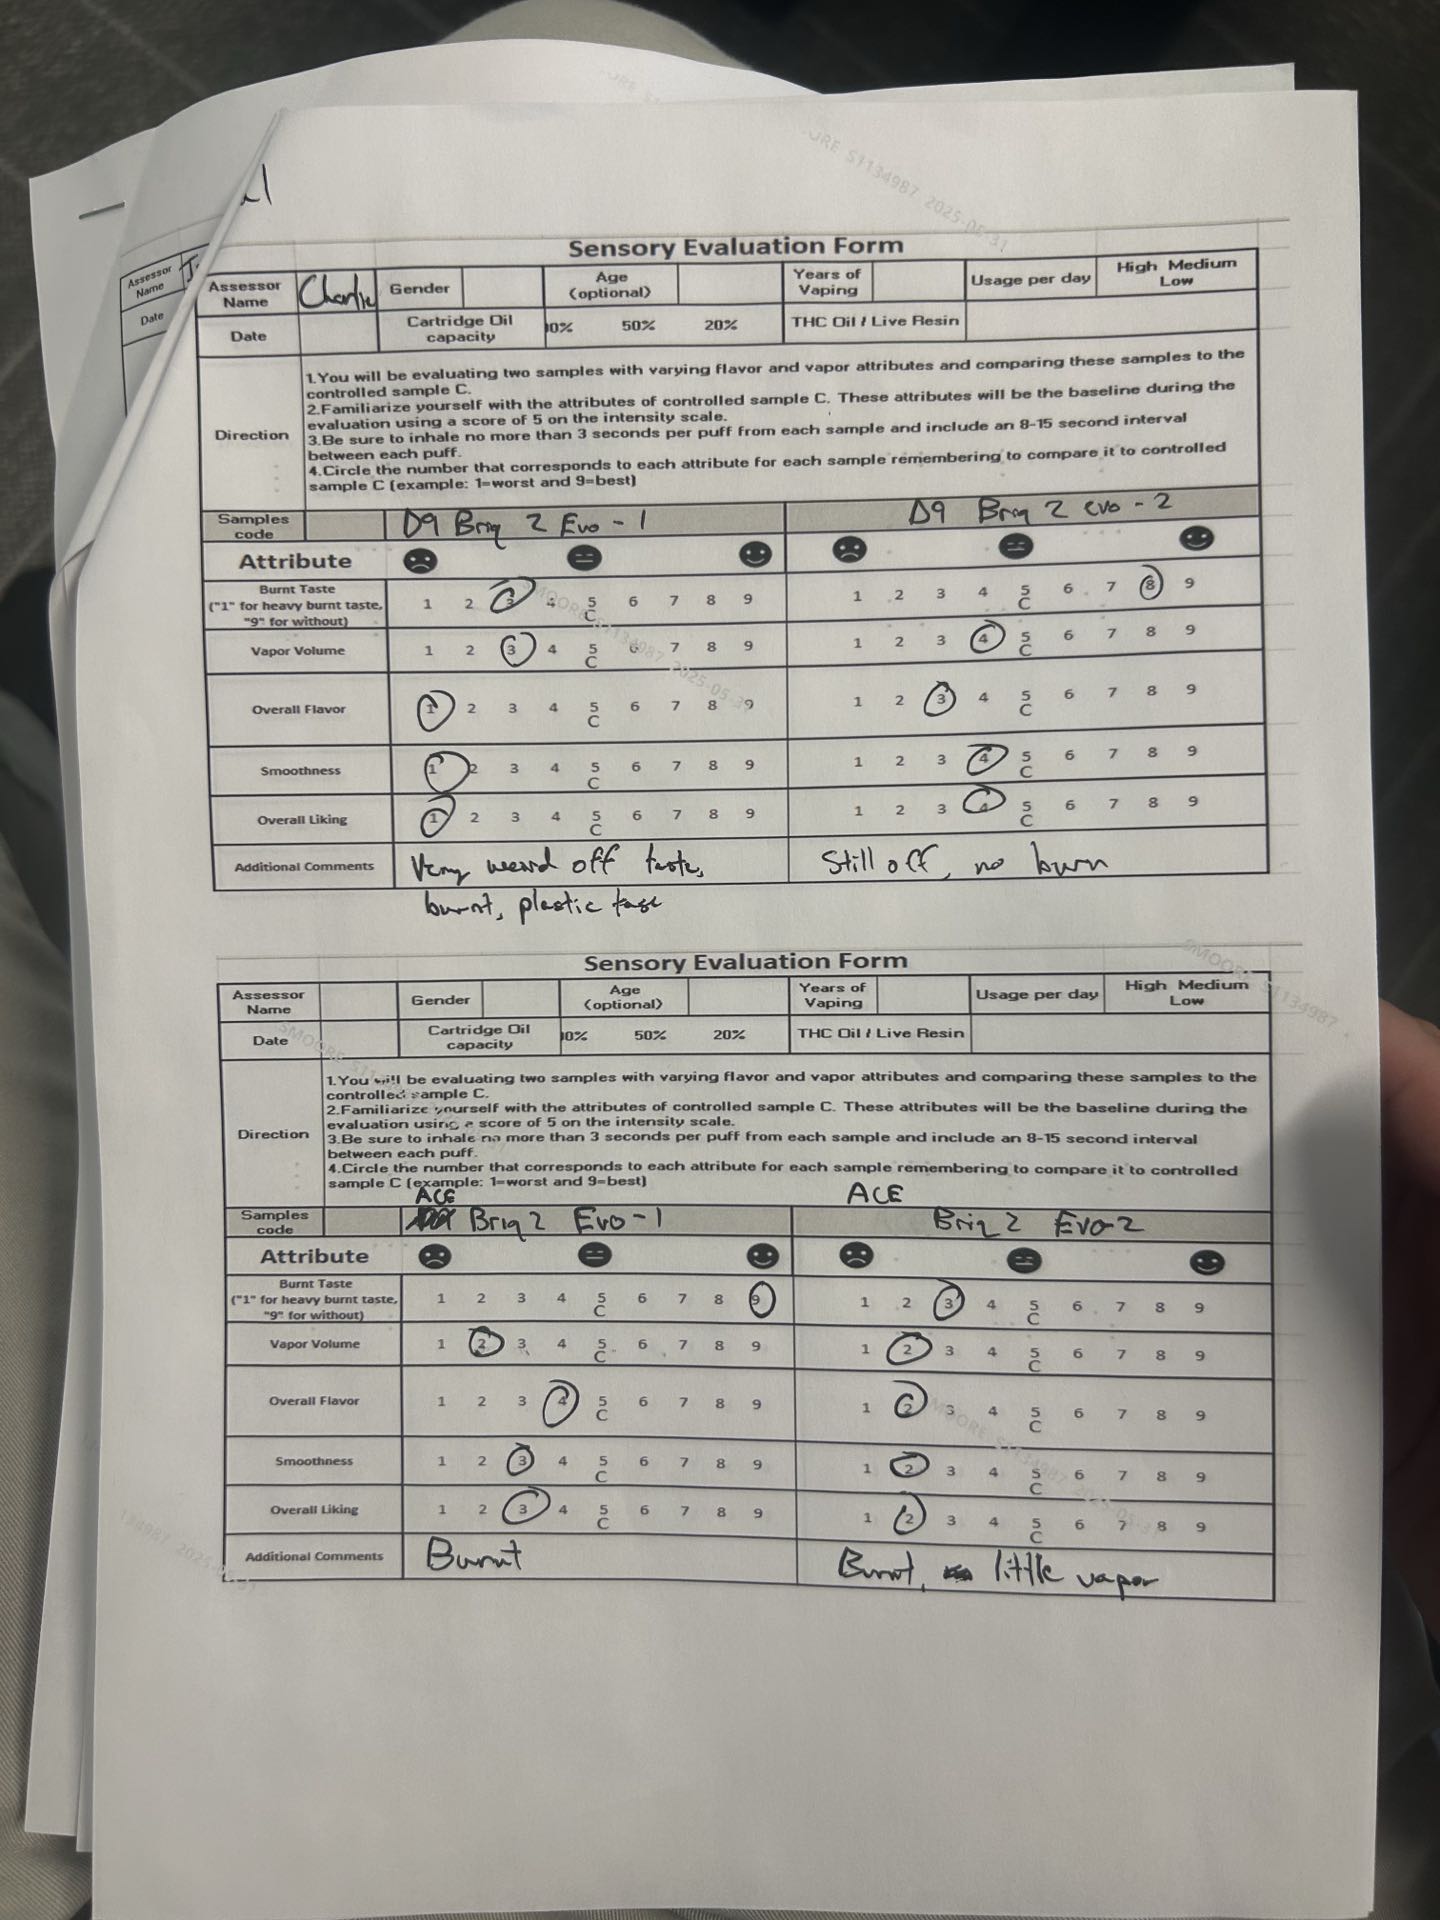 SMOORE S1134987 2025-05-31
Sensory Evaluation Form
Assessor Name Charlie Gender Age (optional) Years of Vaping Usage per day High Medium Low
Date Cartridge Oil capacity 00% 50% 20% THC Oil / Live Resin
Assessor Name
Date
Direction
1.You will be evaluating two samples with varying flavor and vapor attributes and comparing these samples to the
controlled sample C.
2.Familiarize yourself with the attributes of controlled sample C. These attributes will be the baseline during the
evaluation using a score of 5 on the intensity scale.
3.Be sure to inhale no more than 3 seconds per puff from each sample and include an 8-15 second interval
between each puff.
4.Circle the number that corresponds to each attribute for each sample remembering to compare it to controlled
sample C (example: 1=worst and 9=best)
Samples code D9 Briq 2 Evo - 1 D9 Briq 2 evo - 2
Attribute
Burnt Taste ("1" for heavy burnt taste, "9" for without) 1 2 3 4 5 C 6 7 8 9 1 2 3 4 5 C 6 7 8 9
Vapor Volume 1 2 3 4 5 C 6 7 8 9 1 2 3 4 5 C 6 7 8 9
Overall Flavor 1 2 3 4 5 C 6 7 8 9 1 2 3 4 5 C 6 7 8 9
Smoothness 1 2 3 4 5 C 6 7 8 9 1 2 3 4 5 C 6 7 8 9
Overall Liking 1 2 3 4 5 C 6 7 8 9 1 2 3 4 5 C 6 7 8 9
Additional Comments Very weird off taste, Still off, no burn
burnt, plastic
Sensory Evaluation Form
Assessor Name Gender Age (optional) Years of Vaping Usage per day High Medium Low
Date Cartridge Oil capacity 00% 50% 20% THC Oil / Live Resin
Direction
1.You will be evaluating two samples with varying flavor and vapor attributes and comparing these samples to the
controlled sample C.
2.Familiarize yourself with the attributes of controlled sample C. These attributes will be the baseline during the
evaluation using a score of 5 on the intensity scale.
3.Be sure to inhale no more than 3 seconds per puff from each sample and include an 8-15 second interval
between each puff.
4.Circle the number that corresponds to each attribute for each sample remembering to compare it to controlled
sample C (example: 1=worst and 9=best)
ACE ACE
Samples code Briq 2 Evo - 1 Briq 2 Evo-2
Attribute
Burnt Taste ("1" for heavy burnt taste, "9" for without) 1 2 3 4 5 C 6 7 8 9 1 2 3 4 5 C 6 7 8 9
Vapor Volume 1 2 3 4 5 C 6 7 8 9 1 2 3 4 5 C 6 7 8 9
Overall Flavor 1 2 3 4 5 C 6 7 8 9 1 2 3 4 5 C 6 7 8 9
Smoothness 1 2 3 4 5 C 6 7 8 9 1 2 3 4 5 C 6 7 8 9
Overall Liking 1 2 3 4 5 C 6 7 8 9 1 2 3 4 5 C 6 7 8 9
Additional Comments Burnt Burnt, little vapor